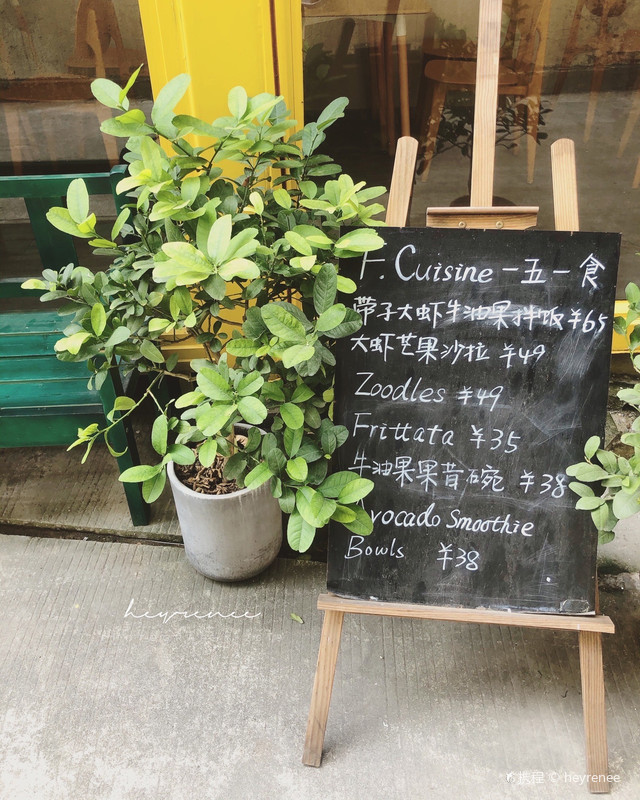 F. Cuisine 一五一食
带子大虾牛油果拌饭 ¥65
大虾芒果沙拉 ¥49
Zoodles ¥49
Frittata ¥35
牛油果果昔碗 ¥38
Avocado Smoothie
Bowls ¥38
heyrenee
© heyrenee